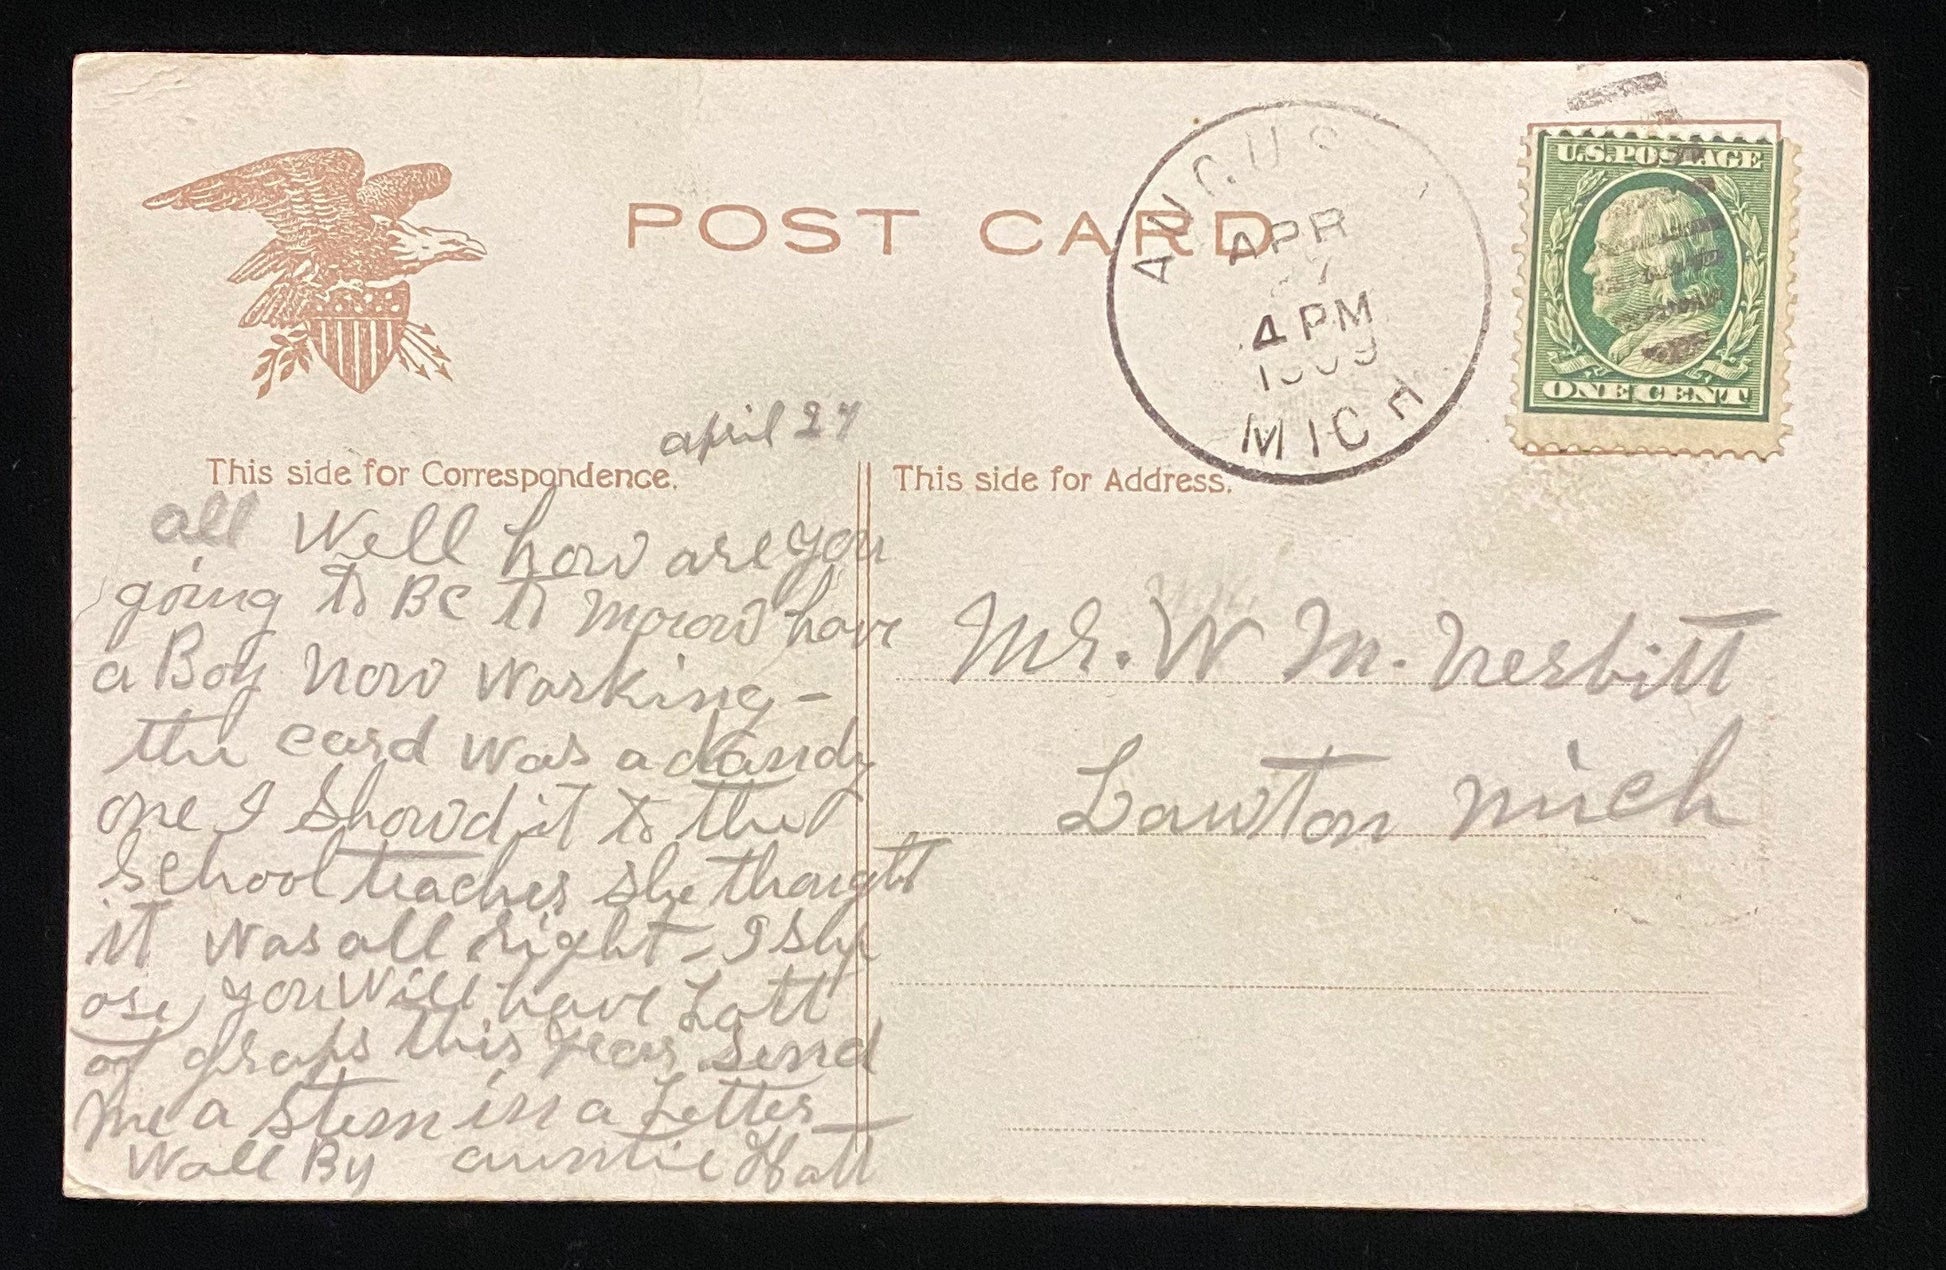 POST CARD
AUGUS
APR
27
4 PM
1909
MICH
U.S. POSTAGE
ONE CENT
april 27
This side for Correspondence.
This side for Address.
all Well how are you
going to Be to morow have
a Boy now working -
the card was a dandy
one I Showd it to the
School teacher she thought
it was all right - I Sup
ose you Will have Lott
of graps this year Send
me a Stem in a Letter
Wall By auntie Hatt
Mr. W M. Nesbitt
Lawton Mich